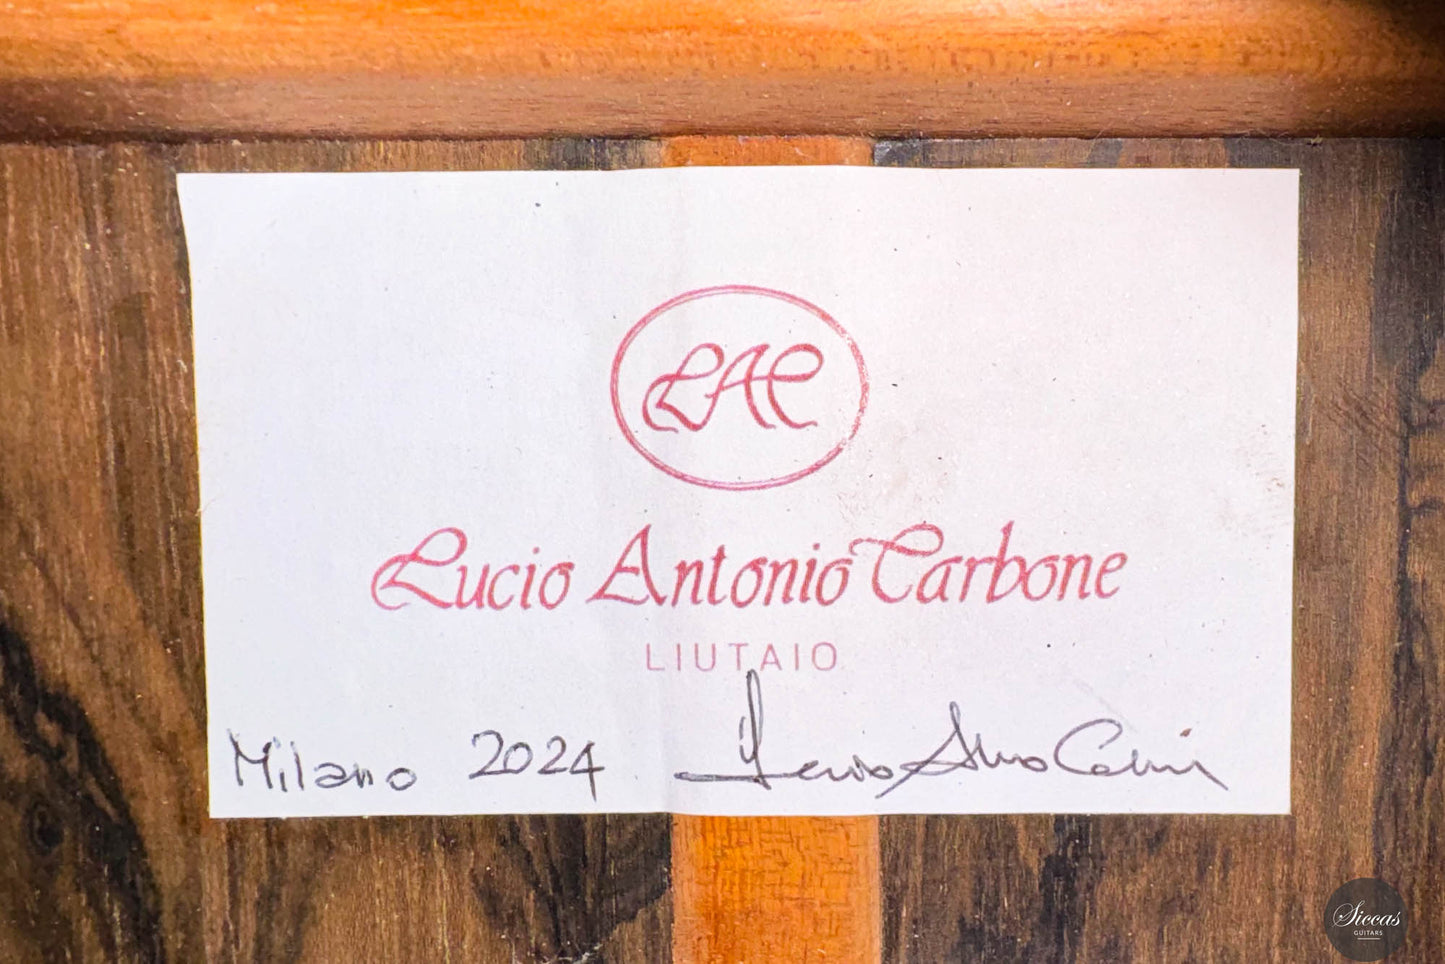 LAC
Lucio Antonio Carbone
LIUTAIO
Milano 2024
Siccas
GUITARS